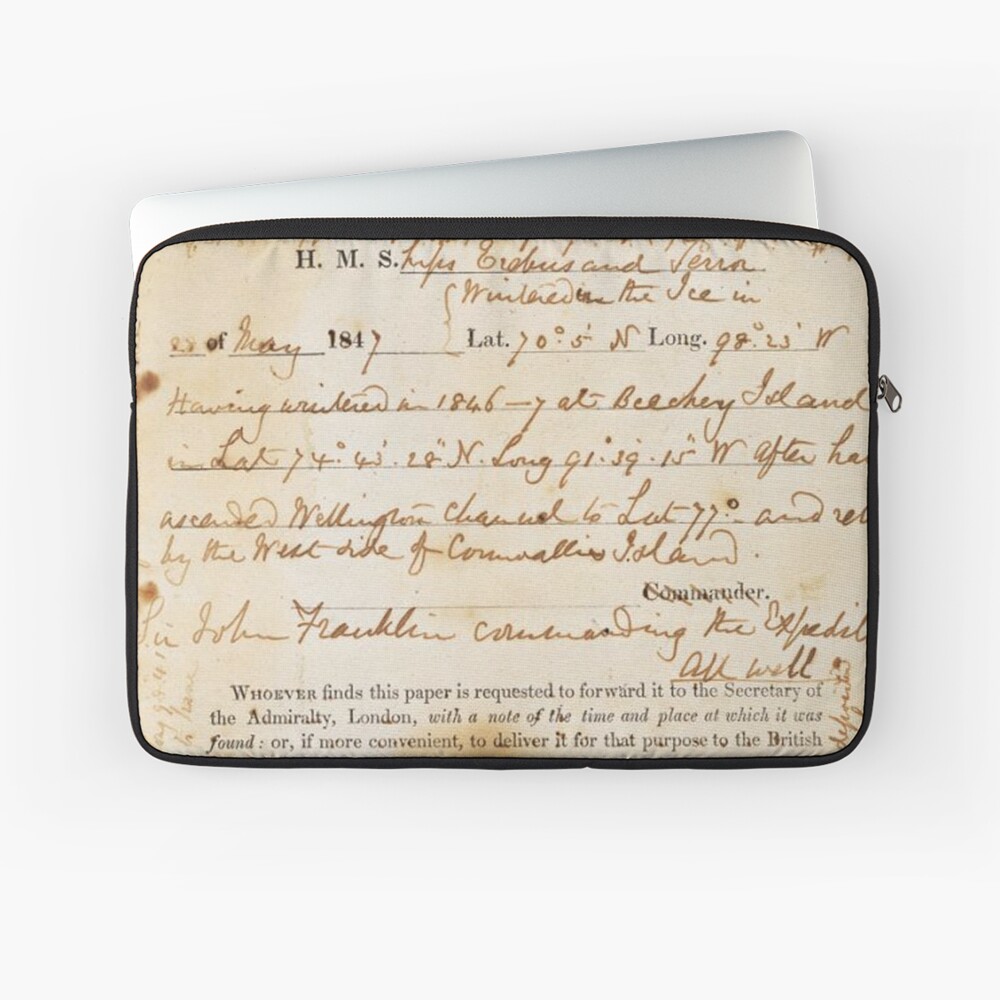 H. M. S. hips Erebus and Terror
Wintered in the Ice in
28 of May 1847 Lat. 70°. 5' N Long. 98°. 23' W
Having wintered in 1846–7 at Beechey Island
in Lat 74°. 43'. 28" N. Long 91°. 39'. 15" W After ha
ascended Wellington Channel to Lat 77° and ret
by the West side of Cornwallis Island.
Commander.
Sir John Franklin commanding the Expedit
All well
WHOEVER finds this paper is requested to forward it to the Secretary of
the Admiralty, London, with a note of the time and place at which it was
found: or, if more convenient, to deliver it for that purpose to the British